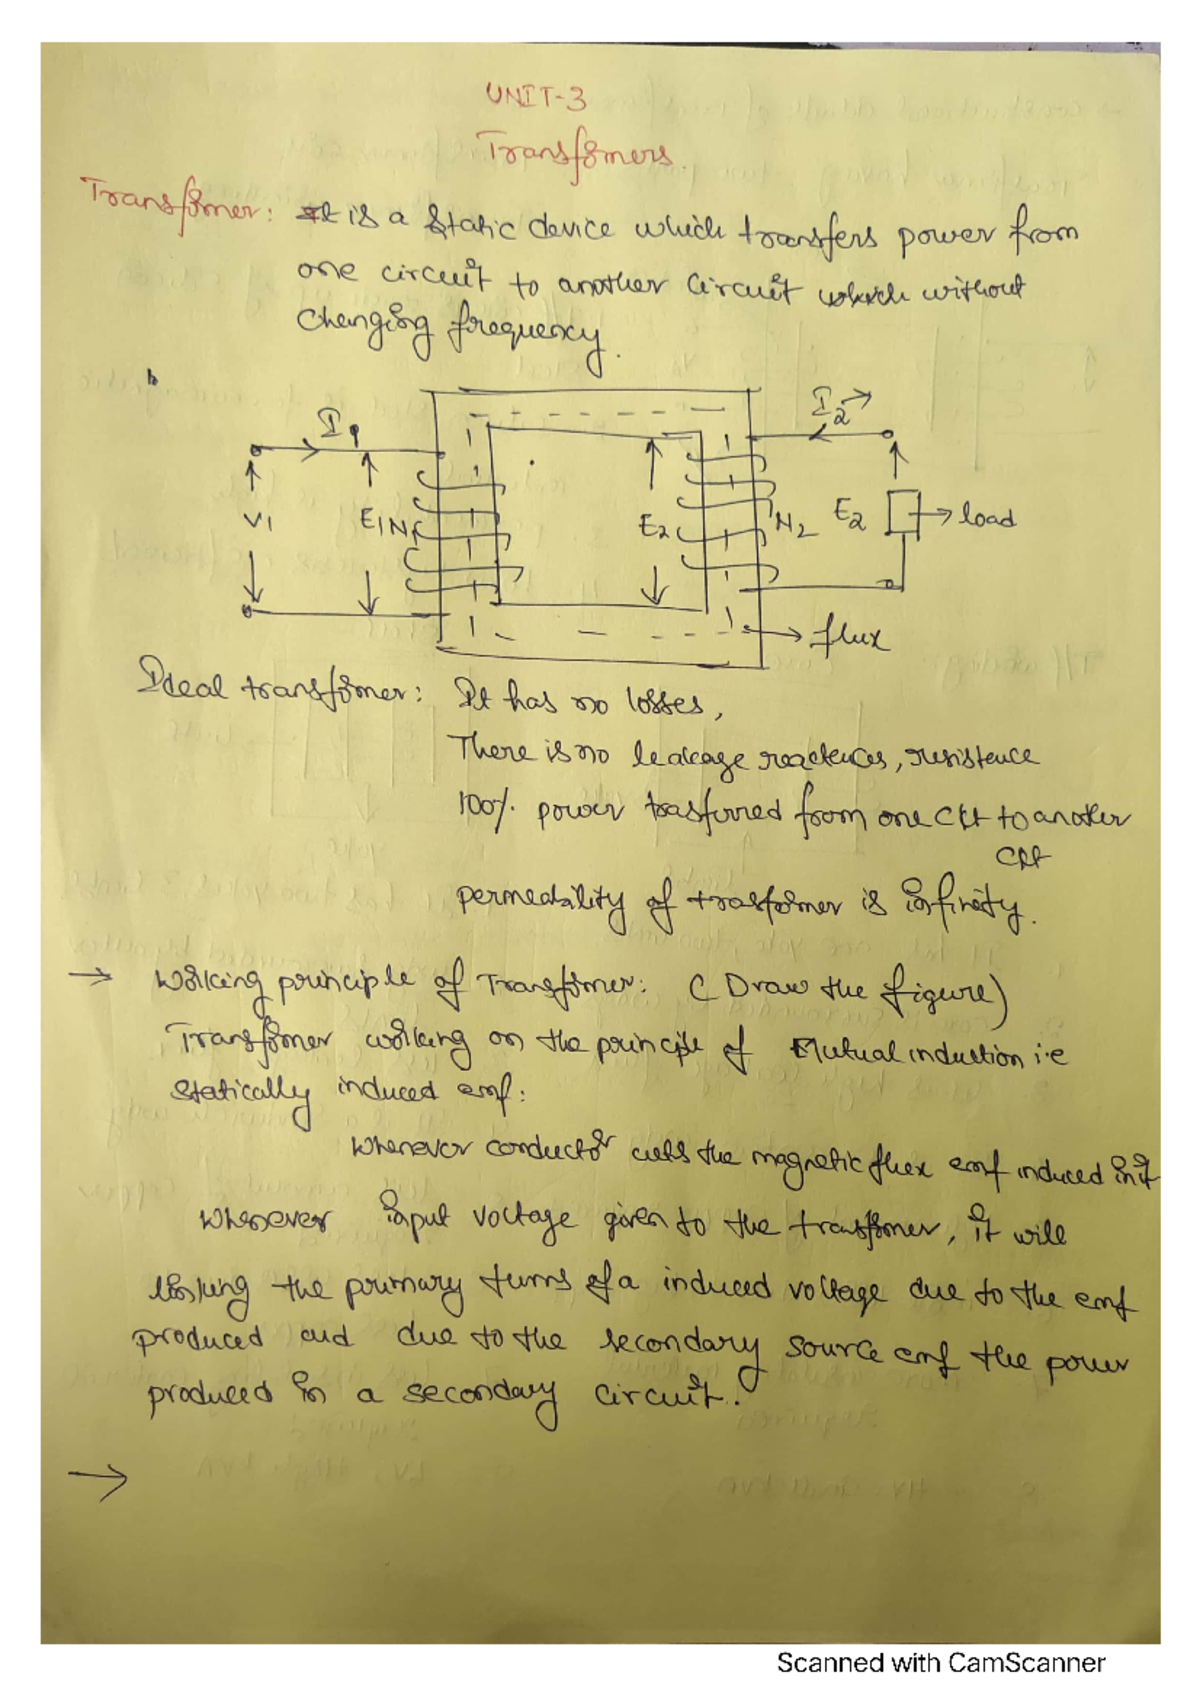 UNIT-3
Transformers.
Transformer: It is a static device which transfers power from
one circuit to another circuit which without
changing frequency.
I1
I2
V1
E1
N1
E2
N2
E2
load
flux
Ideal transformer: It has no losses,
There is no leakage reactences, resistence
100% power trasfurred from one Ckt to another
Ckt
permeability of trasformer is infinity.
→ Working principle of Transformer: ( Draw the figure)
Transformer working on the principle of Mutual induction i.e
statically induced emf:
Whenever conductor cuts the magnetic flux emf induced in it
Whenever input voltage given to the transformer, it will
linking the primary turns of a induced voltage due to the emf
produced and due to the secondary source emf the power
produced in a secondary circuit.
→
Scanned with CamScanner